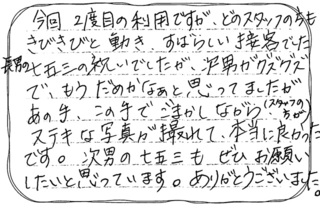 今回 2度目の利用ですが、どのスタッフの方も
きびきびと 動き、すばらしい 接客でした
長男の七五三の祝いでしたが、次男がグズグズ
で、もう だめかなぁと思ってましたが
あの手、この手で ごまかしながら(スタッフの方が)
ステキな写真が撮れて、本当に良かった
です。次男の七五三も、ぜひ お願い
したいと思っています。ありがとうございました。